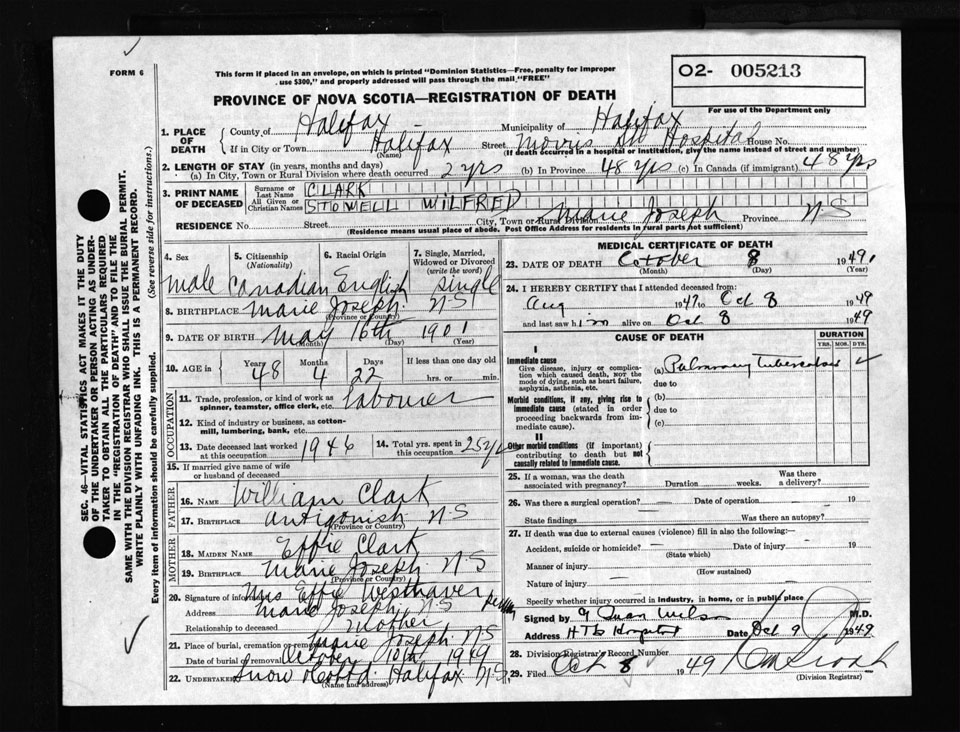 FORM 6
This form if placed in an envelope, on which is printed "Dominion Statistics—Free, penalty for improper
use $300," and properly addressed will pass through the mail "FREE"
02- 005213
For use of the Department only
PROVINCE OF NOVA SCOTIA—REGISTRATION OF DEATH
SEC. 46—VITAL STATISTICS ACT MAKES IT THE DUTY
OF THE UNDERTAKER OR PERSON ACTING AS UNDER-
TAKER TO OBTAIN ALL THE PARTICULARS REQUIRED
IN THE "REGISTRATION OF DEATH" AND TO FILE THE
SAME WITH THE DIVISION REGISTRAR WHO SHALL ISSUE THE BURIAL PERMIT.
WRITE PLAINLY WITH UNFADING INK. THIS IS A PERMANENT RECORD.
Every item of information should be carefully supplied. (See reverse side for instructions.)
1. PLACE OF DEATH County of Halifax Municipality of Halifax
If in City or Town Halifax (Name) Street Morris St Hospital House No.
(If death occurred in a hospital or institution, give the name instead of street and number)
2. LENGTH OF STAY (in years, months and days)
(a) In City, Town or Rural Division where death occurred 2 yrs (b) In Province 48 yrs (c) In Canada (if immigrant) 48 yrs
3. PRINT NAME OF DECEASED Surname or Last Name CLARK
All Given or Christian Names STOWELL WILFRED
RESIDENCE No. Street City, Town or Rural Division Marie Joseph Province N S
(Residence means usual place of abode. Post Office Address for residents in rural parts not sufficient)
4. Sex 5. Citizenship (Nationality) 6. Racial Origin 7. Single, Married, Widowed or Divorced (write the word)
male Canadian English Single
8. BIRTHPLACE Marie Joseph N S
(Province or Country)
9. DATE OF BIRTH May 16th 1901
(Month) (Day) (Year)
10. AGE in Years 48 Months 4 Days 22 If less than one day old hrs. or min.
OCCUPATION
11. Trade, profession, or kind of work as spinner, teamster, office clerk, etc. labourer
12. Kind of industry or business, as cotton-mill, lumbering, bank, etc.
13. Date deceased last worked at this occupation 1946 14. Total yrs. spent in this occupation 25 yrs
15. If married give name of wife or husband of deceased
FATHER
16. NAME William Clark
17. BIRTHPLACE Antigonish N-S
(Province or Country)
MOTHER
18. MAIDEN NAME Effie Clark
19. BIRTHPLACE Marie Joseph N S
(Province or Country)
20. Signature of informant Mrs Effie Westhaver
Address Marie Joseph N S
Relationship to deceased Mother
21. Place of burial, cremation or removal Marie Joseph N S
Date of burial or removal October 10th 1949
22. Undertaker Snow & Co Ltd. Halifax N.S.
(Name and address)
MEDICAL CERTIFICATE OF DEATH
23. DATE OF DEATH October 8 1949
(Month) (Day) (Year)
24. I HEREBY CERTIFY that I attended deceased from:
Aug 1947 to Oct 8 1949
and last saw him alive on Oct 8 1949
CAUSE OF DEATH
DURATION
YRS. MOS. DYS.
I
Immediate cause
Give disease, injury or complication which caused death, NOT the mode of dying, such as heart failure, asphyxia, asthenia, etc.
(a) Pulmonary Tuberculosis
due to
Morbid conditions, if any, giving rise to immediate cause (stated in order proceeding backwards from immediate cause).
(b)
due to
(c)
II
Other morbid conditions (if important) contributing to death but not causally related to immediate cause.
25. If a woman, was the death associated with pregnancy? Duration weeks. Was there a delivery?
26. Was there a surgical operation? — Date of operation — 19
State findings Was there an autopsy?
27. If death was due to external causes (violence) fill in also the following:
Accident, suicide or homicide? — Date of injury — 19
(State which)
Manner of injury
(How sustained)
Nature of injury —
Specify whether injury occurred in industry, in home, or in public place
Signed by M.D.
Address H Tb Hospital Date Oct 9 1949
28. Division Registrar's Record Number
29. Filed Oct 8 1949
(Division Registrar)